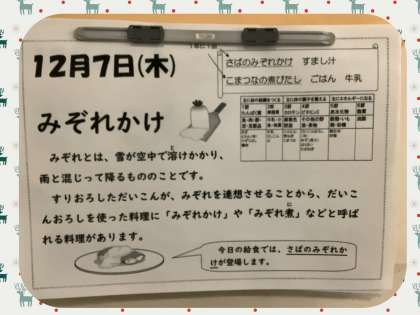 12月7日(木)
さばのみぞれかけ すまし汁
こまつなの煮びたし ごはん 牛乳
みぞれかけ
みぞれとは、雪が空中で溶けかかり、
雨と混じって降るもののことです。
すりおろしただいこんが、みぞれを連想させることから、だいこ
んおろしを使った料理に「みぞれかけ」や「みぞれ煮」などと呼ば
れる料理があります。
今日の給食では、さばのみぞれか
けが登場します。